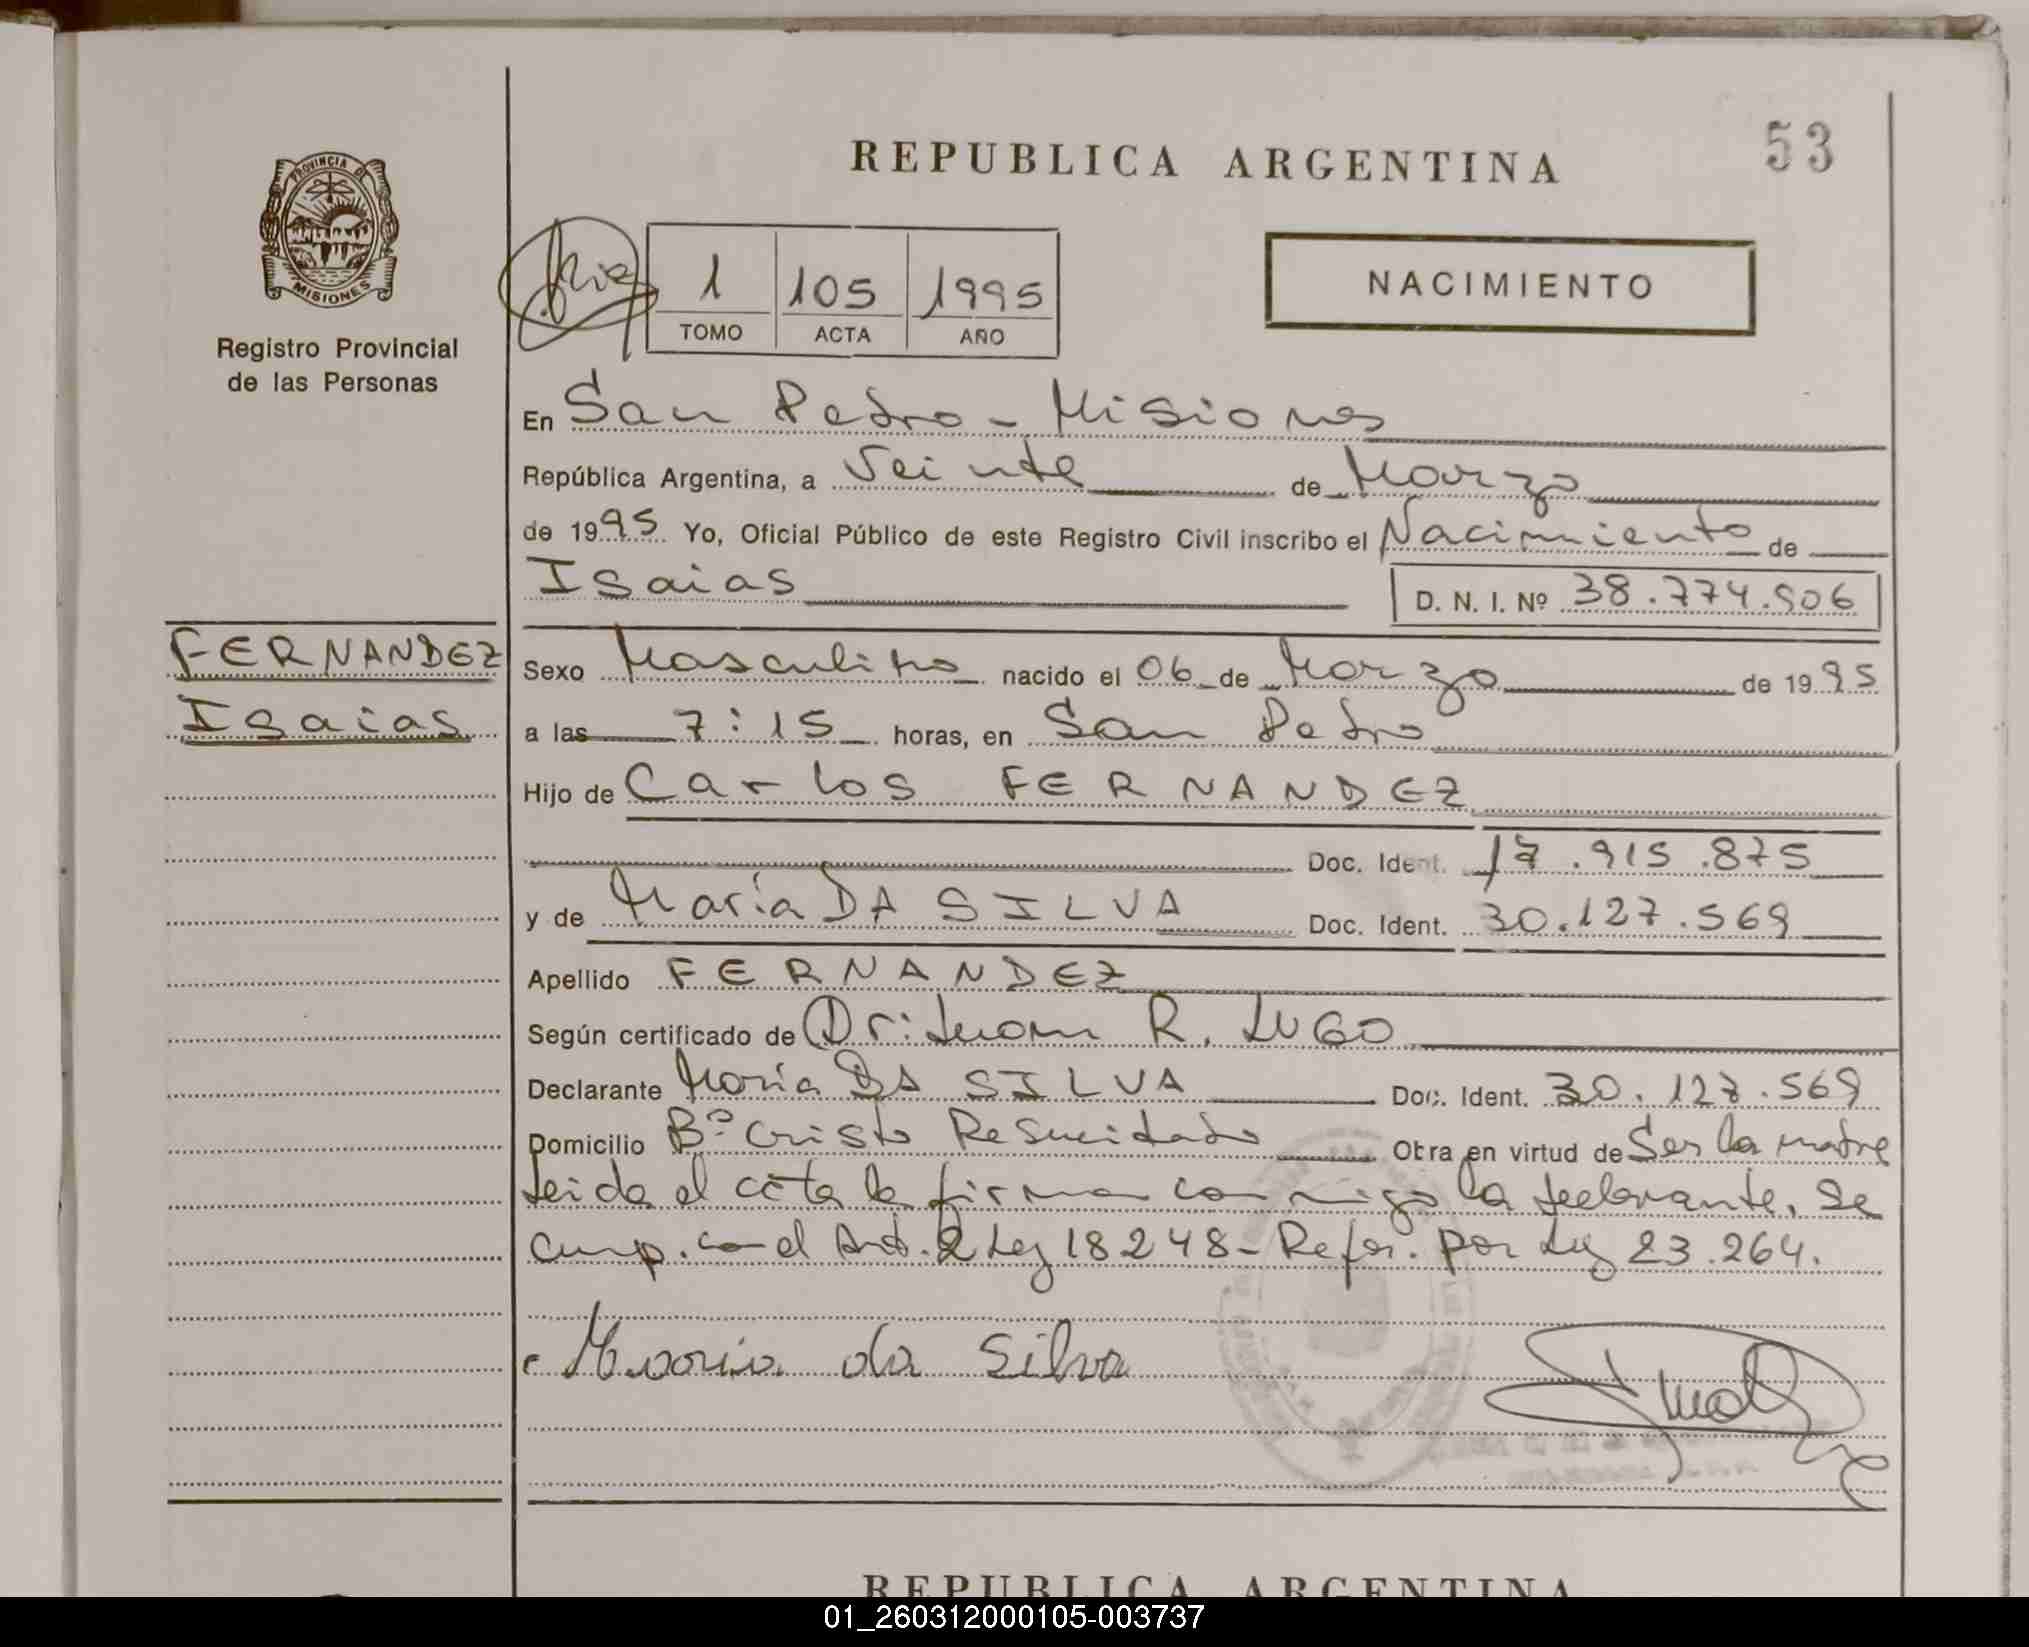 53
REPUBLICA ARGENTINA
PROVINCIA DE
MISIONES
Registro Provincial
de las Personas
1 105 1995
TOMO ACTA AÑO
NACIMIENTO
En San Pedro - Misiones
República Argentina, a Veinte de Marzo
de 1995 Yo, Oficial Público de este Registro Civil inscribo el Nacimiento de
Isaias D. N. I. Nº 38.774.906
FERNANDEZ
Isaias
Sexo Masculino nacido el 06 de Marzo de 1995
a las 7:15 horas, en San Pedro
Hijo de Carlos FERNANDEZ
Doc. Ident. 17.915.875
y de María DA SILVA Doc. Ident. 30.127.569
Apellido FERNANDEZ
Según certificado de Dr: Juan R. LUGO
Declarante María DA SILVA Doc. Ident. 30.127.569
Domicilio Bº Cristo Resucitado Obra en virtud de Ser la madre
Leida el acta la firma conmigo la declarante. Se
cump. con el Art. 2 Ley 18248 - Refor. por Ley 23.264.
Maria da Silva
REPUBLICA ARGENTINA
01_260312000105-003737